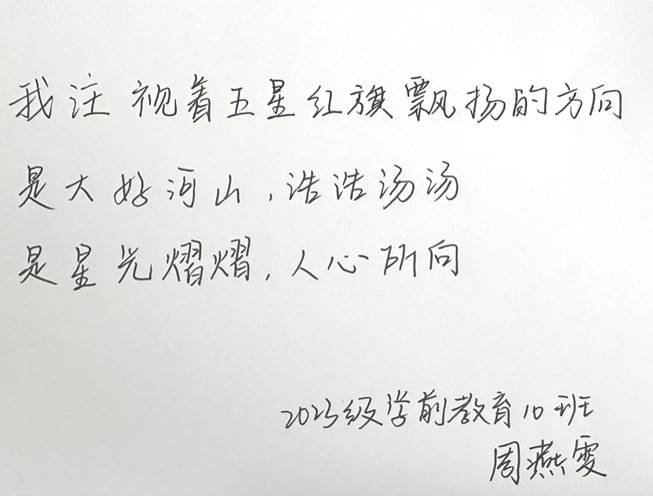 我注视着五星红旗飘扬的方向
是大好河山，浩浩汤汤
是星光熠熠，人心所向
2023级学前教育10班
周燕雯